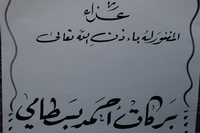 عزاء
المغفور له بإذن الله تعالى
بركات أحمد بسطامي